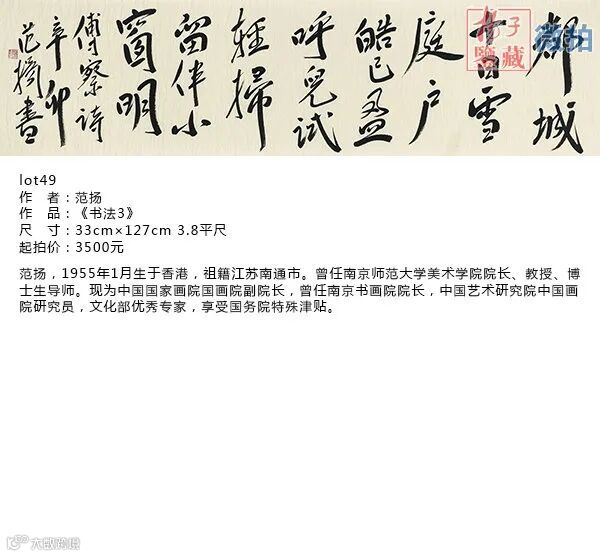 都城
十日雪
庭户
皓已盈
呼兒試
輕掃
留伴小
窗明
傅察詩
辛卯
范揚書
子
鑒藏
微拍
lot49
作 者：范扬
作 品：《书法3》
尺 寸：33cm×127cm 3.8平尺
起拍价：3500元
范扬，1955年1月生于香港，祖籍江苏南通市。曾任南京师范大学美术学院院长、教授、博
士生导师。现为中国国家画院国画院副院长，曾任南京书画院院长，中国艺术研究院中国画
院研究员，文化部优秀专家，享受国务院特殊津贴。
大数跨境